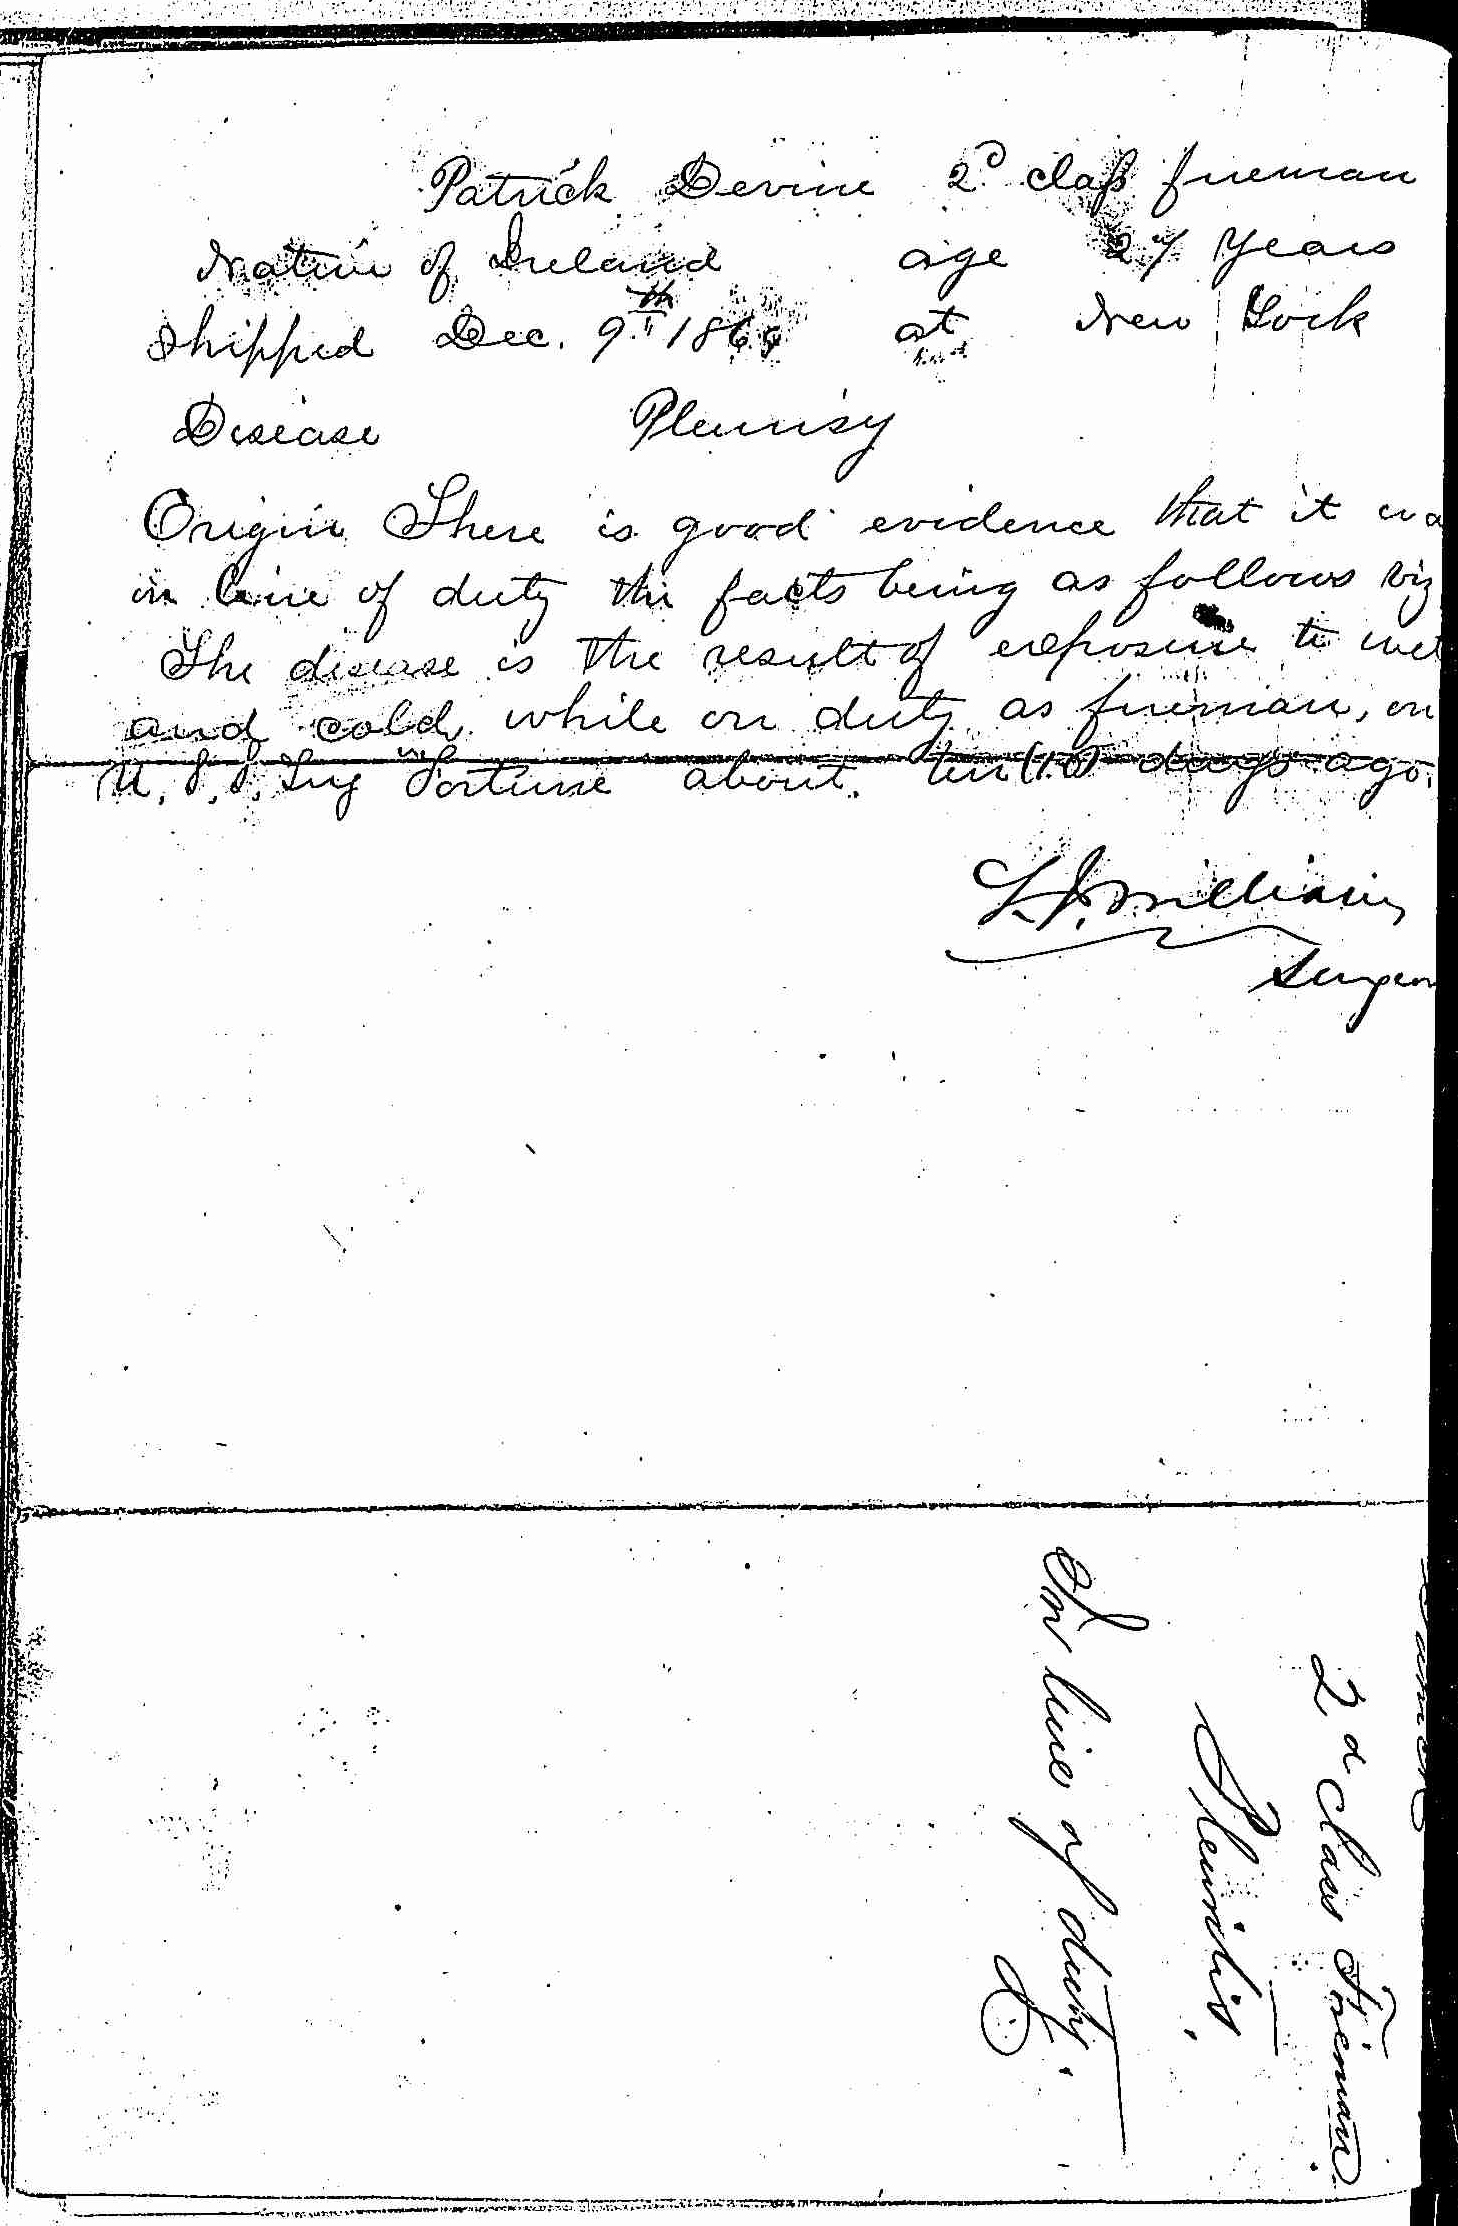 Patrick Devine 2d class fireman
Native of Ireland age 27 Years
Shipped Dec. 9th at New York
Disease Pleurisy
Origin There is good evidence that it wa
in line of duty the facts being as follows viz
The disease is the result of exposure to wet
and cold while on duty as fireman, on
U.S.S. Tug Fortune about ten (10) days ago.
Williams
Surgeon
2d Class Fireman
Pleuritis
In line of duty.